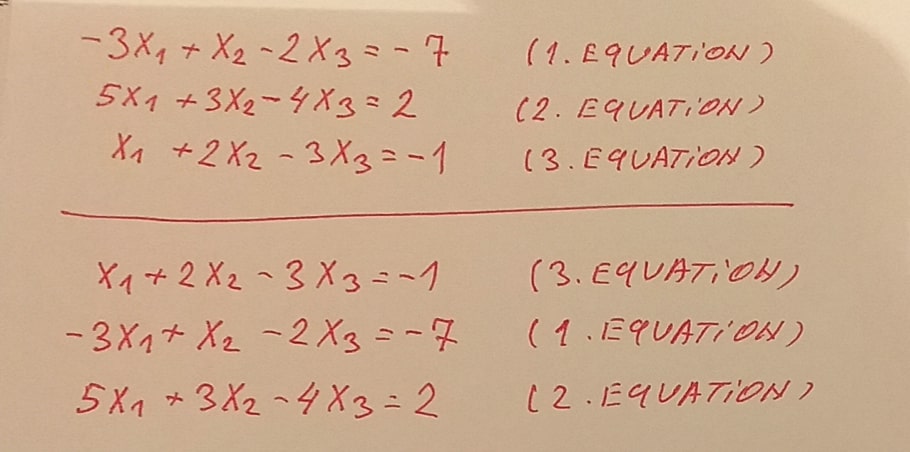 -3X₁ + X₂ - 2X₃ = -7 (1. EQUATiON)
5X₁ + 3X₂ - 4X₃ = 2 (2. EQUATiON)
X₁ + 2X₂ - 3X₃ = -1 (3. EQUATiON)
X₁ + 2X₂ - 3X₃ = -1 (3. EQUATiON)
-3X₁ + X₂ - 2X₃ = -7 (1. EQUATiON)
5X₁ + 3X₂ - 4X₃ = 2 (2. EQUATiON)